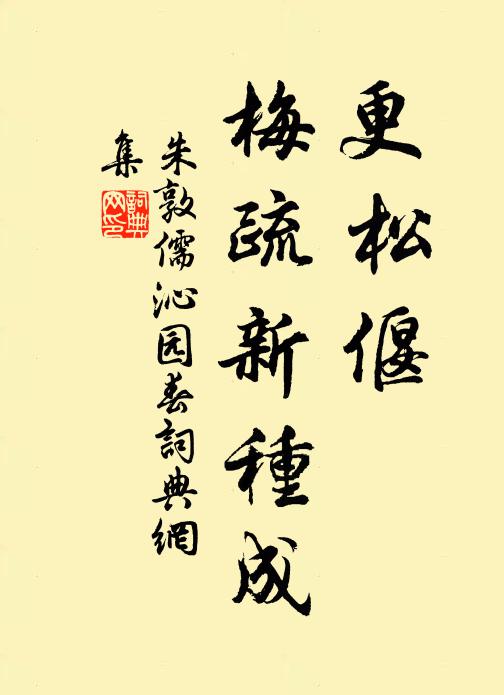 更松偃
梅疏新種成
朱敦儒沁园春詞典網
集
詞典
网印